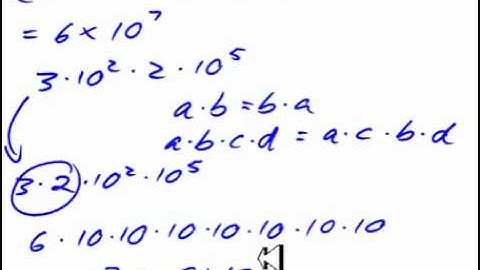 = 6 × 10⁷
3 · 10² · 2 · 10⁵
a · b = b · a
a · b · c · d = a · c · b · d
3 · 2 · 10² · 10⁵
6 · 10 · 10 · 10 · 10 · 10 · 10 · 10